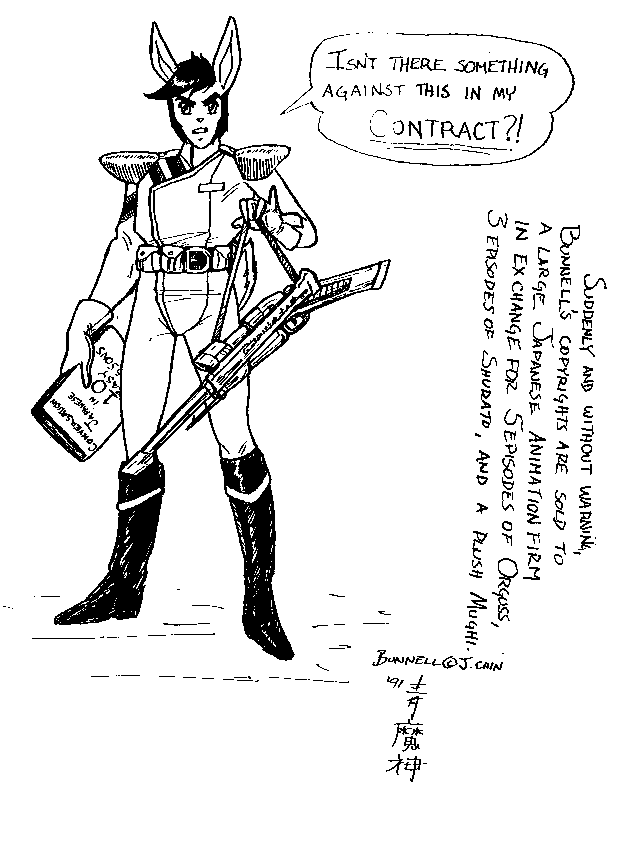 ISN'T THERE SOMETHING
AGAINST THIS IN MY
CONTRACT?!
SUDDENLY AND WITHOUT WARNING,
BUNNELL'S COPYRIGHTS ARE SOLD TO
A LARGE JAPANESE ANIMATION FIRM
IN EXCHANGE FOR 5 EPISODES OF ORGUSS,
3 EPISODES OF SHURATO, AND A PLUSH MUGHI.
CONVERSATION
JAPANESE
IN
10
EASY
LESSONS
BUNNELL©J.CAIN
'91
青
魔
神